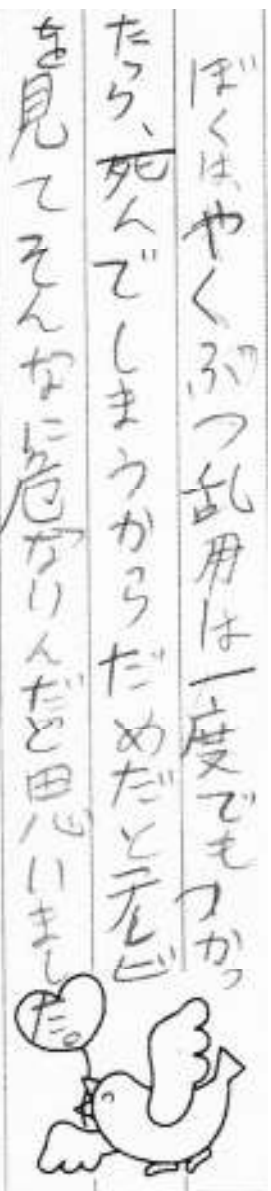 ぼくは、やくぶつ乱用は一度でもつかっ
たら、死んでしまうからだめだとテレビ
を見てそんなに危ないんだと思いました。